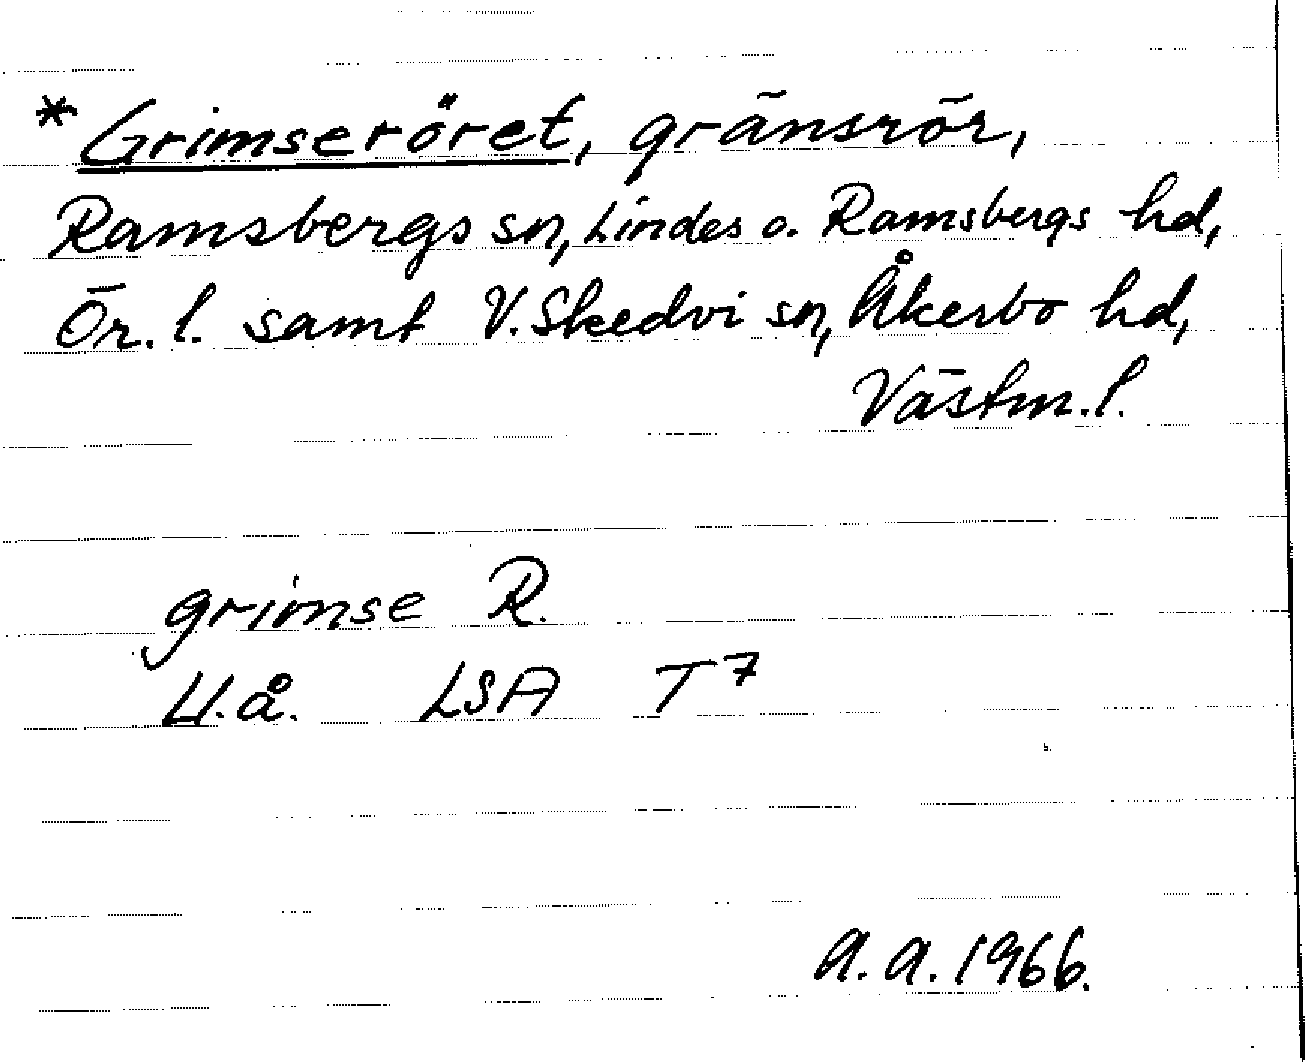 *Grimseröret, gränsrör,
Ramsbergs sn, Lindes o. Ramsbergs hd,
Ör. l. samt V. Skedvi sn, Åkerbo hd,
Västm. l.
grimse R.
U.å. LSA T7
A. A. 1966.